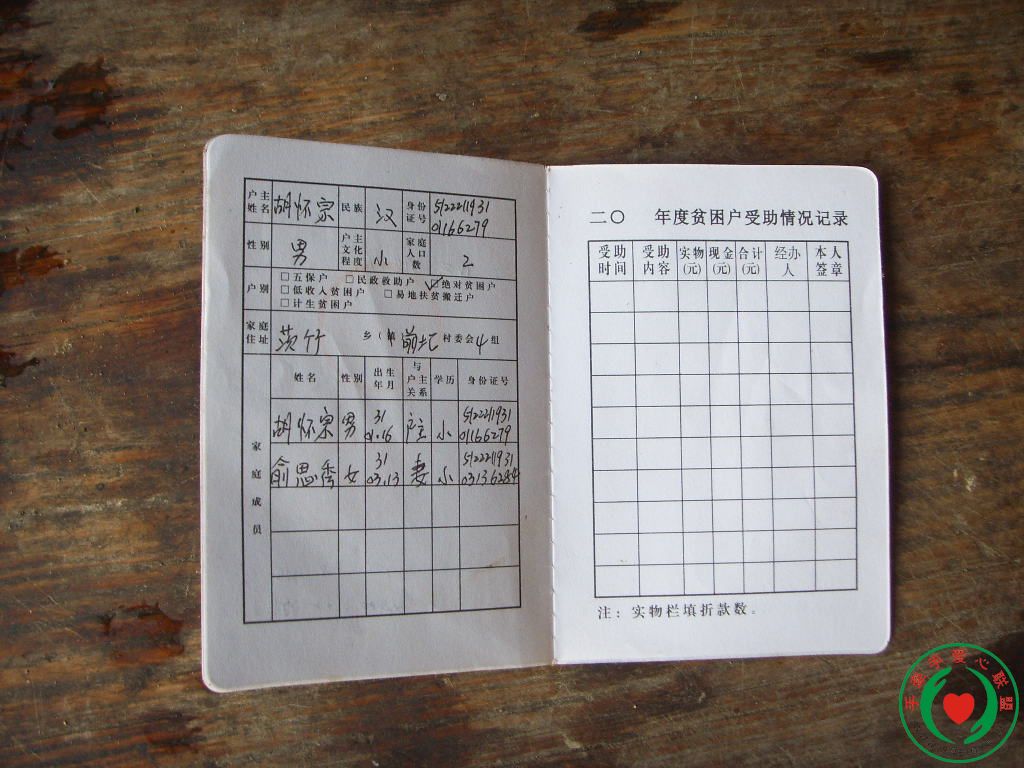 户主姓名 胡怀宗 民族 汉 身份证号 5122211931 01166279
性别 男 户主文化程度 小 家庭人口数 2
户别 □五保户 □民政救助户 ☑绝对贫困户
□低收入贫困户 □易地扶贫搬迁户
□计生贫困户
家庭住址 茨竹 乡(镇 前 村委会 4 组
家庭成员
姓名 性别 出生年月 与户主关系 学历 身份证号
胡怀宗 男 31 01.16 户主 小 5122211931 01166279
俞思秀 女 31 03.13 妻 小 5122211931
二〇 年度贫困户受助情况记录
受助时间 受助内容 实物(元) 现金(元) 合计(元) 经办人 本人签章
注：实物栏填折款数。
手牵手爱心联盟